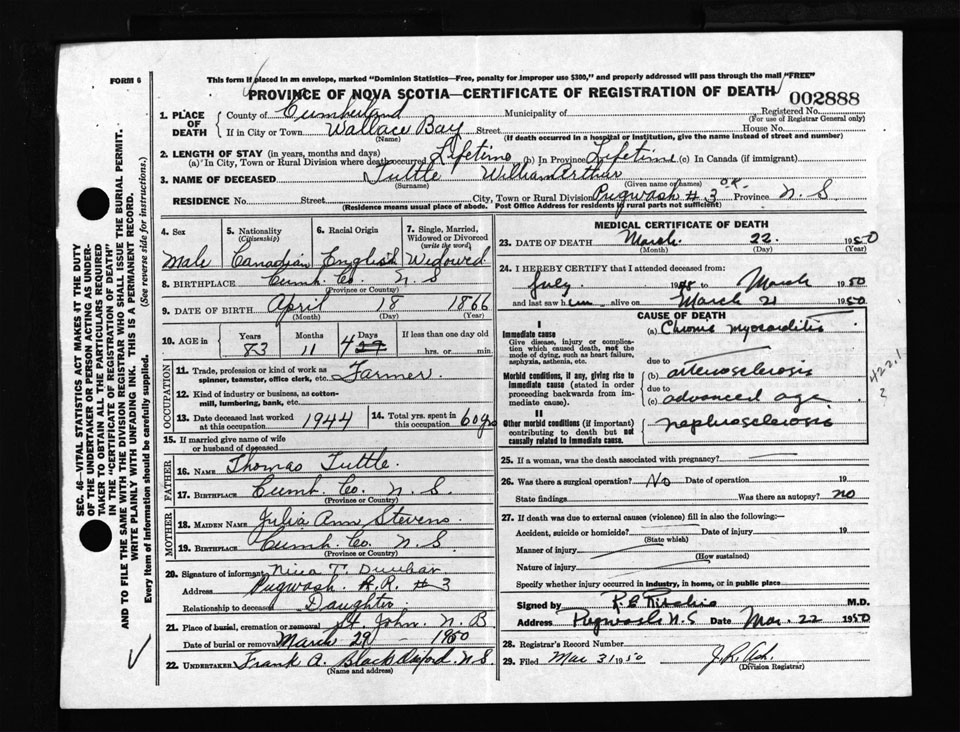 FORM 6
This form if placed in an envelope, marked "Dominion Statistics—Free, penalty for improper use $300," and properly addressed will pass through the mail "FREE"
PROVINCE OF NOVA SCOTIA—CERTIFICATE OF REGISTRATION OF DEATH
002888
1. PLACE OF DEATH
County of Cumberland Municipality of Registered No.
(For use of Registrar General only)
If in City or Town Wallace Bay Street House No.
(Name) (If death occurred in a hospital or institution, give the name instead of street and number)
2. LENGTH OF STAY (in years, months and days)
(a) In City, Town or Rural Division where death occurred Lifetime (b) In Province Lifetime (c) In Canada (if immigrant)
3. NAME OF DECEASED Tuttle William Arthur
(Surname) (Given name or names)
RESIDENCE No. Street City, Town or Rural Division Pugwash #3 Province N S
(Residence means usual place of abode. Post Office Address for residents in rural parts not sufficient)
4. Sex Male
5. Nationality (Citizenship) Canadian
6. Racial Origin English
7. Single, Married, Widowed or Divorced (write the word) Widowed
8. BIRTHPLACE Cumb. Co. N S
(Province or Country)
9. DATE OF BIRTH April 18 1866
(Month) (Day) (Year)
10. AGE in Years Months Days If less than one day old
83 11 4 hrs. or min.
OCCUPATION
11. Trade, profession or kind of work as spinner, teamster, office clerk, etc. Farmer
12. Kind of industry or business, as cotton-mill, lumbering, bank, etc.
13. Date deceased last worked at this occupation 1944
14. Total yrs. spent in this occupation 60 yrs
15. If married give name of wife or husband of deceased
FATHER
16. NAME Thomas Tuttle
17. BIRTHPLACE Cumb. Co. N. S.
(Province or Country)
MOTHER
18. MAIDEN NAME Julia Ann Stevens
19. BIRTHPLACE Cumb. Co. N. S
(Province or Country)
20. Signature of informant Nina T. Dunbar
Address Pugwash R.R. #3
Relationship to deceased Daughter
21. Place of burial, cremation or removal St. John. N. B
Date of burial or removal March 29 - 1950
22. UNDERTAKER Frank A. Black N.S.
(Name and address)
MEDICAL CERTIFICATE OF DEATH
23. DATE OF DEATH March 22 1950
(Month) (Day) (Year)
24. I HEREBY CERTIFY that I attended deceased from:
July 1948 to March 1950
and last saw him alive on March 21 1950
CAUSE OF DEATH
I
Immediate cause
Give disease, injury or complication which caused death, not the mode of dying, such as heart failure, asphyxia, asthenia, etc.
(a) Chronic myocarditis
due to
Morbid conditions, if any, giving rise to immediate cause (stated in order proceeding backwards from immediate cause).
(b) arteriosclerosis
due to
(c) advanced age
II
Other morbid conditions (if important) contributing to death but not causally related to immediate cause.
nephrosclerosis
422.1
2
25. If a woman, was the death associated with pregnancy?
26. Was there a surgical operation? No Date of operation 19
State findings Was there an autopsy? no
27. If death was due to external causes (violence) fill in also the following:—
Accident, suicide or homicide? Date of injury 19
(State which)
Manner of injury
(How sustained)
Nature of injury
Specify whether injury occurred in industry, in home, or in public place
Signed by R E Ritchie M.D.
Address Pugwash N.S Date Mar. 22 1950
28. Registrar's Record Number
29. Filed Mar 31 1950
(Division Registrar)
SEC. 46—VITAL STATISTICS ACT MAKES IT THE DUTY
OF THE UNDERTAKER OR PERSON ACTING AS UNDER-
TAKER TO OBTAIN ALL THE PARTICULARS REQUIRED
IN THE "CERTIFICATE OF REGISTRATION OF DEATH"
AND TO FILE THE SAME WITH THE DIVISION REGISTRAR WHO SHALL ISSUE THE BURIAL PERMIT.
WRITE PLAINLY WITH UNFADING INK. THIS IS A PERMANENT RECORD.
Every item of information should be carefully supplied. (See reverse side for instructions.)